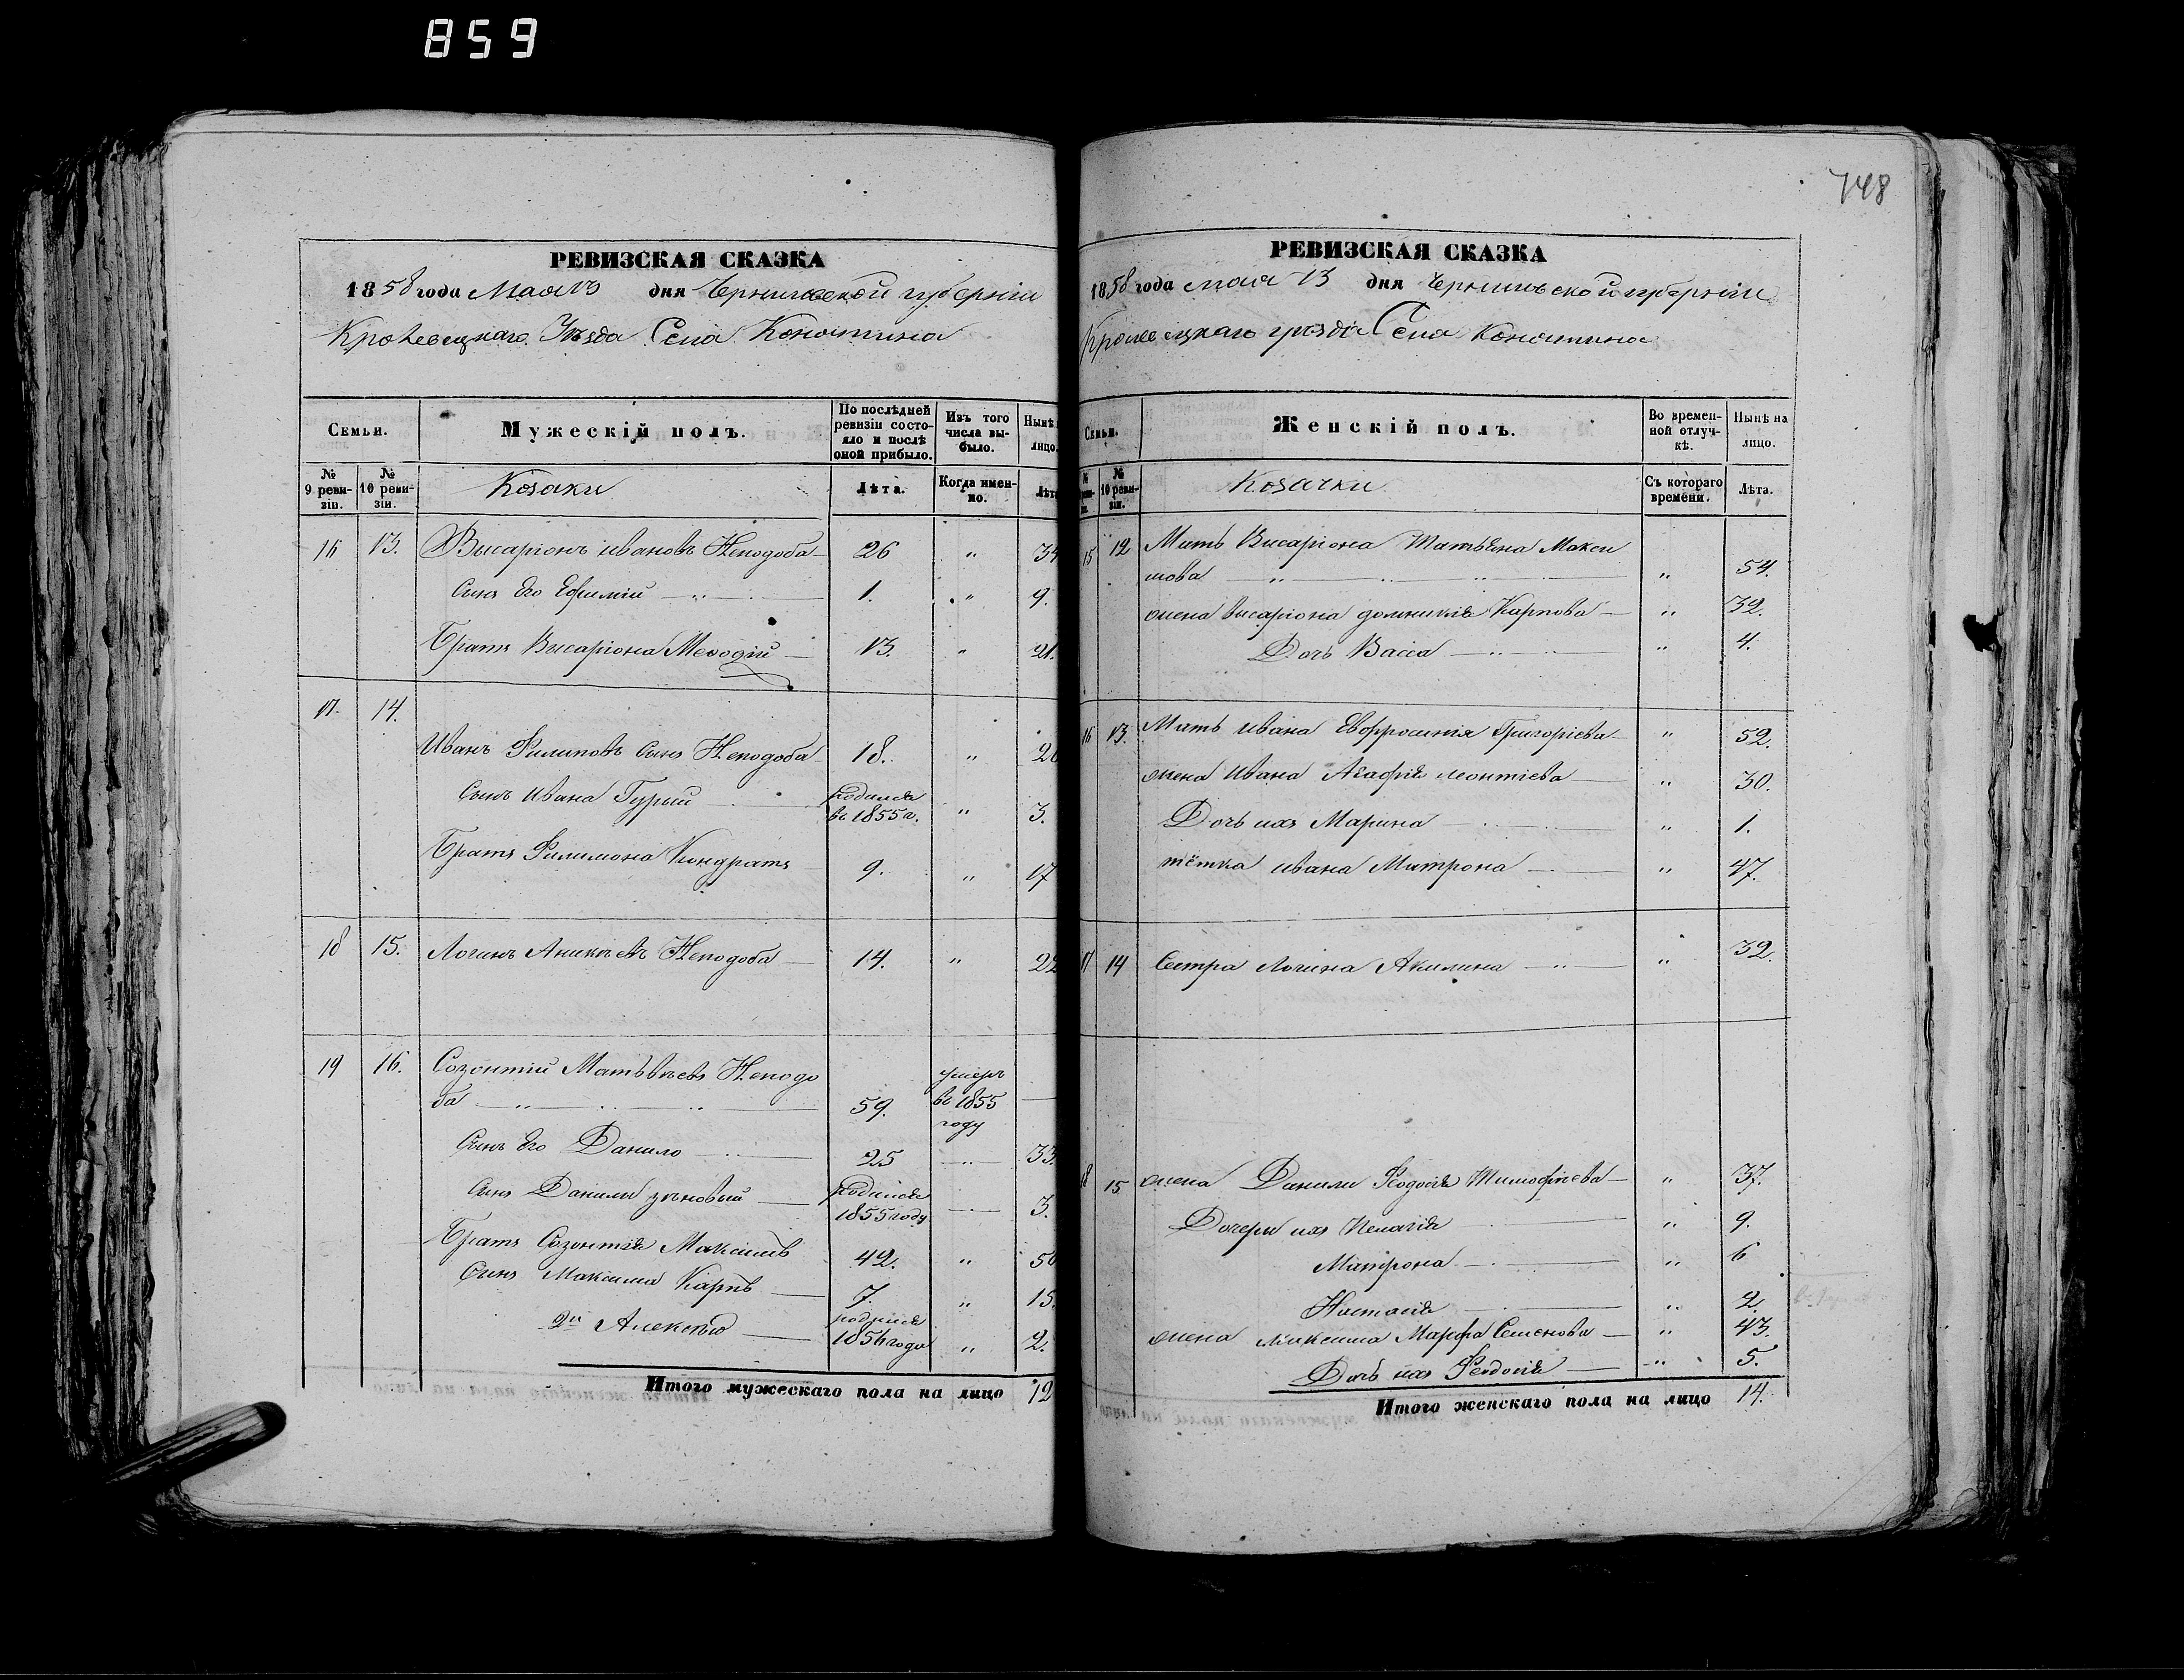 859
748
РЕВИЗСКАЯ СКАЗКА
1858 года Мая 13 дня Черниговской губернии
Кролевецкаго Уѣзда Села Конотипа
Семьи.
Мужескій полъ.
По послѣдней ревизіи состояло и послѣ оной прибыло.
Изъ того числа выбыло.
Нынѣ лицо.
№ 9 ревизіи.
№ 10 ревизіи.
Козаки
Лѣта.
Когда именно.
Лѣта
16 13. Висаріонъ Ивановъ Неподоба 26 " 34
Сынъ его Ефимій 1. " 9.
Братъ Висаріона Меѳодій 13. " 21.
17. 14.
Иванъ Филиповъ Сынъ Неподоба 18. " 26
Сынъ Ивана Гурій родился въ 1855 г. " 3.
Братъ Филимона Кондратъ 9. " 17
18 15. Логинъ Аникіевъ Неподоба 14. " 22
19 16. Созонтій Матвѣевъ Неподо
ба 59. умеръ въ 1855 году
Сынъ его Данило 25 33.
Сынъ Данилы Зѣновій родился 1855 году 3.
Братъ Созонтія Максимъ 42. " 50
Сынъ Максима Карпъ 7. " 15.
2й Алексѣй родился 1856 года " 2.
Итого мужескаго пола на лицо 12
РЕВИЗСКАЯ СКАЗКА
1858 года мая 13 дня Черниговской губерніи
Кролевецкаго уѣзда Села
Семьи.
Женскій полъ.
Во временной отлучкѣ.
Нынѣ на лицо.
№ 10 ревизіи.
Козачки
Съ котораго времени.
Лѣта.
15 12 Мать Висаріона Татьяна Макси
мова " 54.
жена Висаріона Домникія Карпова " 32.
Дочь Васса " 4.
16 13. Мать Ивана Евфросинія Григоріева " 52.
жена Ивана Агафія Леонтіева " 30.
Дочь ихъ Марина " 1.
тётка Ивана Матрона " 47.
17 14 Сестра Логина Акилина " 32.
18 15 жена Данилы Ѳеодосія Тимофіева " 37.
Дочери ихъ Пелагія " 9.
Матрона " 6
Настасія " 2.
жена Максима Марфа Семенова " 43.
Дочь ихъ Феодосія " 5.
Итого женскаго пола на лицо 14.